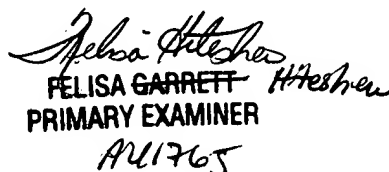 Felisa Hiteshew
FELISA GARRETT Hiteshew
PRIMARY EXAMINER
AU1765